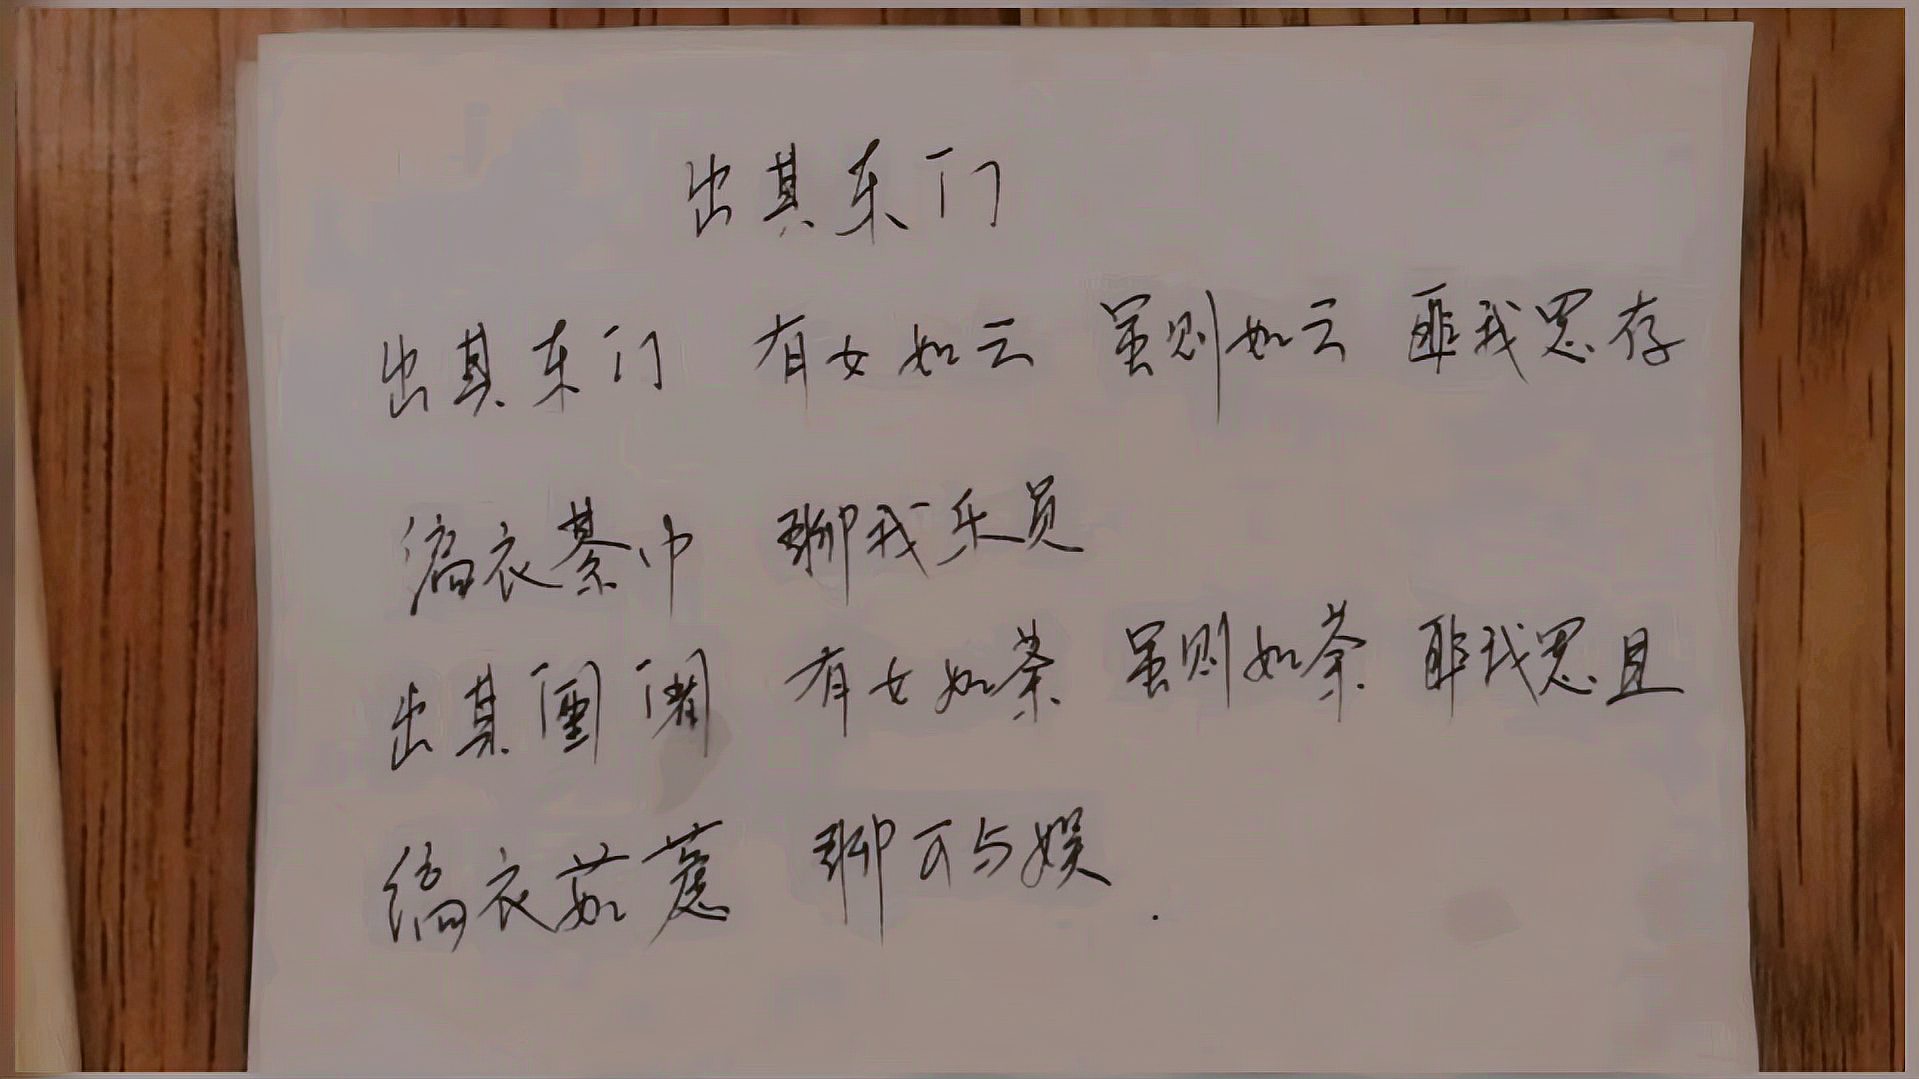 出其东门
出其东门 有女如云 虽则如云 匪我思存
缟衣綦巾 聊我乐员
出其闉阇 有女如荼 虽则如荼 匪我思且
缟衣茹藘 聊可与娱.